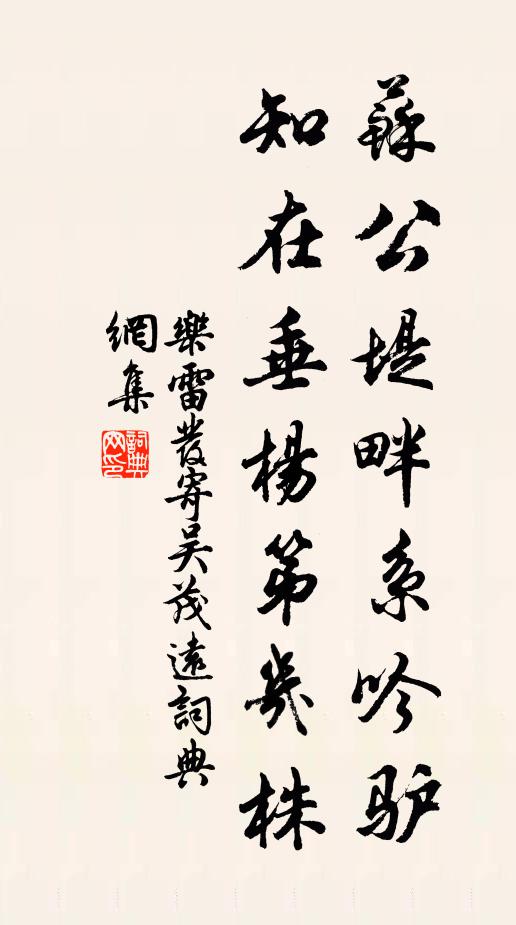 蘇公堤畔系吟驴
知在垂楊第幾株
樂雷發寄吴茂遠詞典
網集
詞典
网印